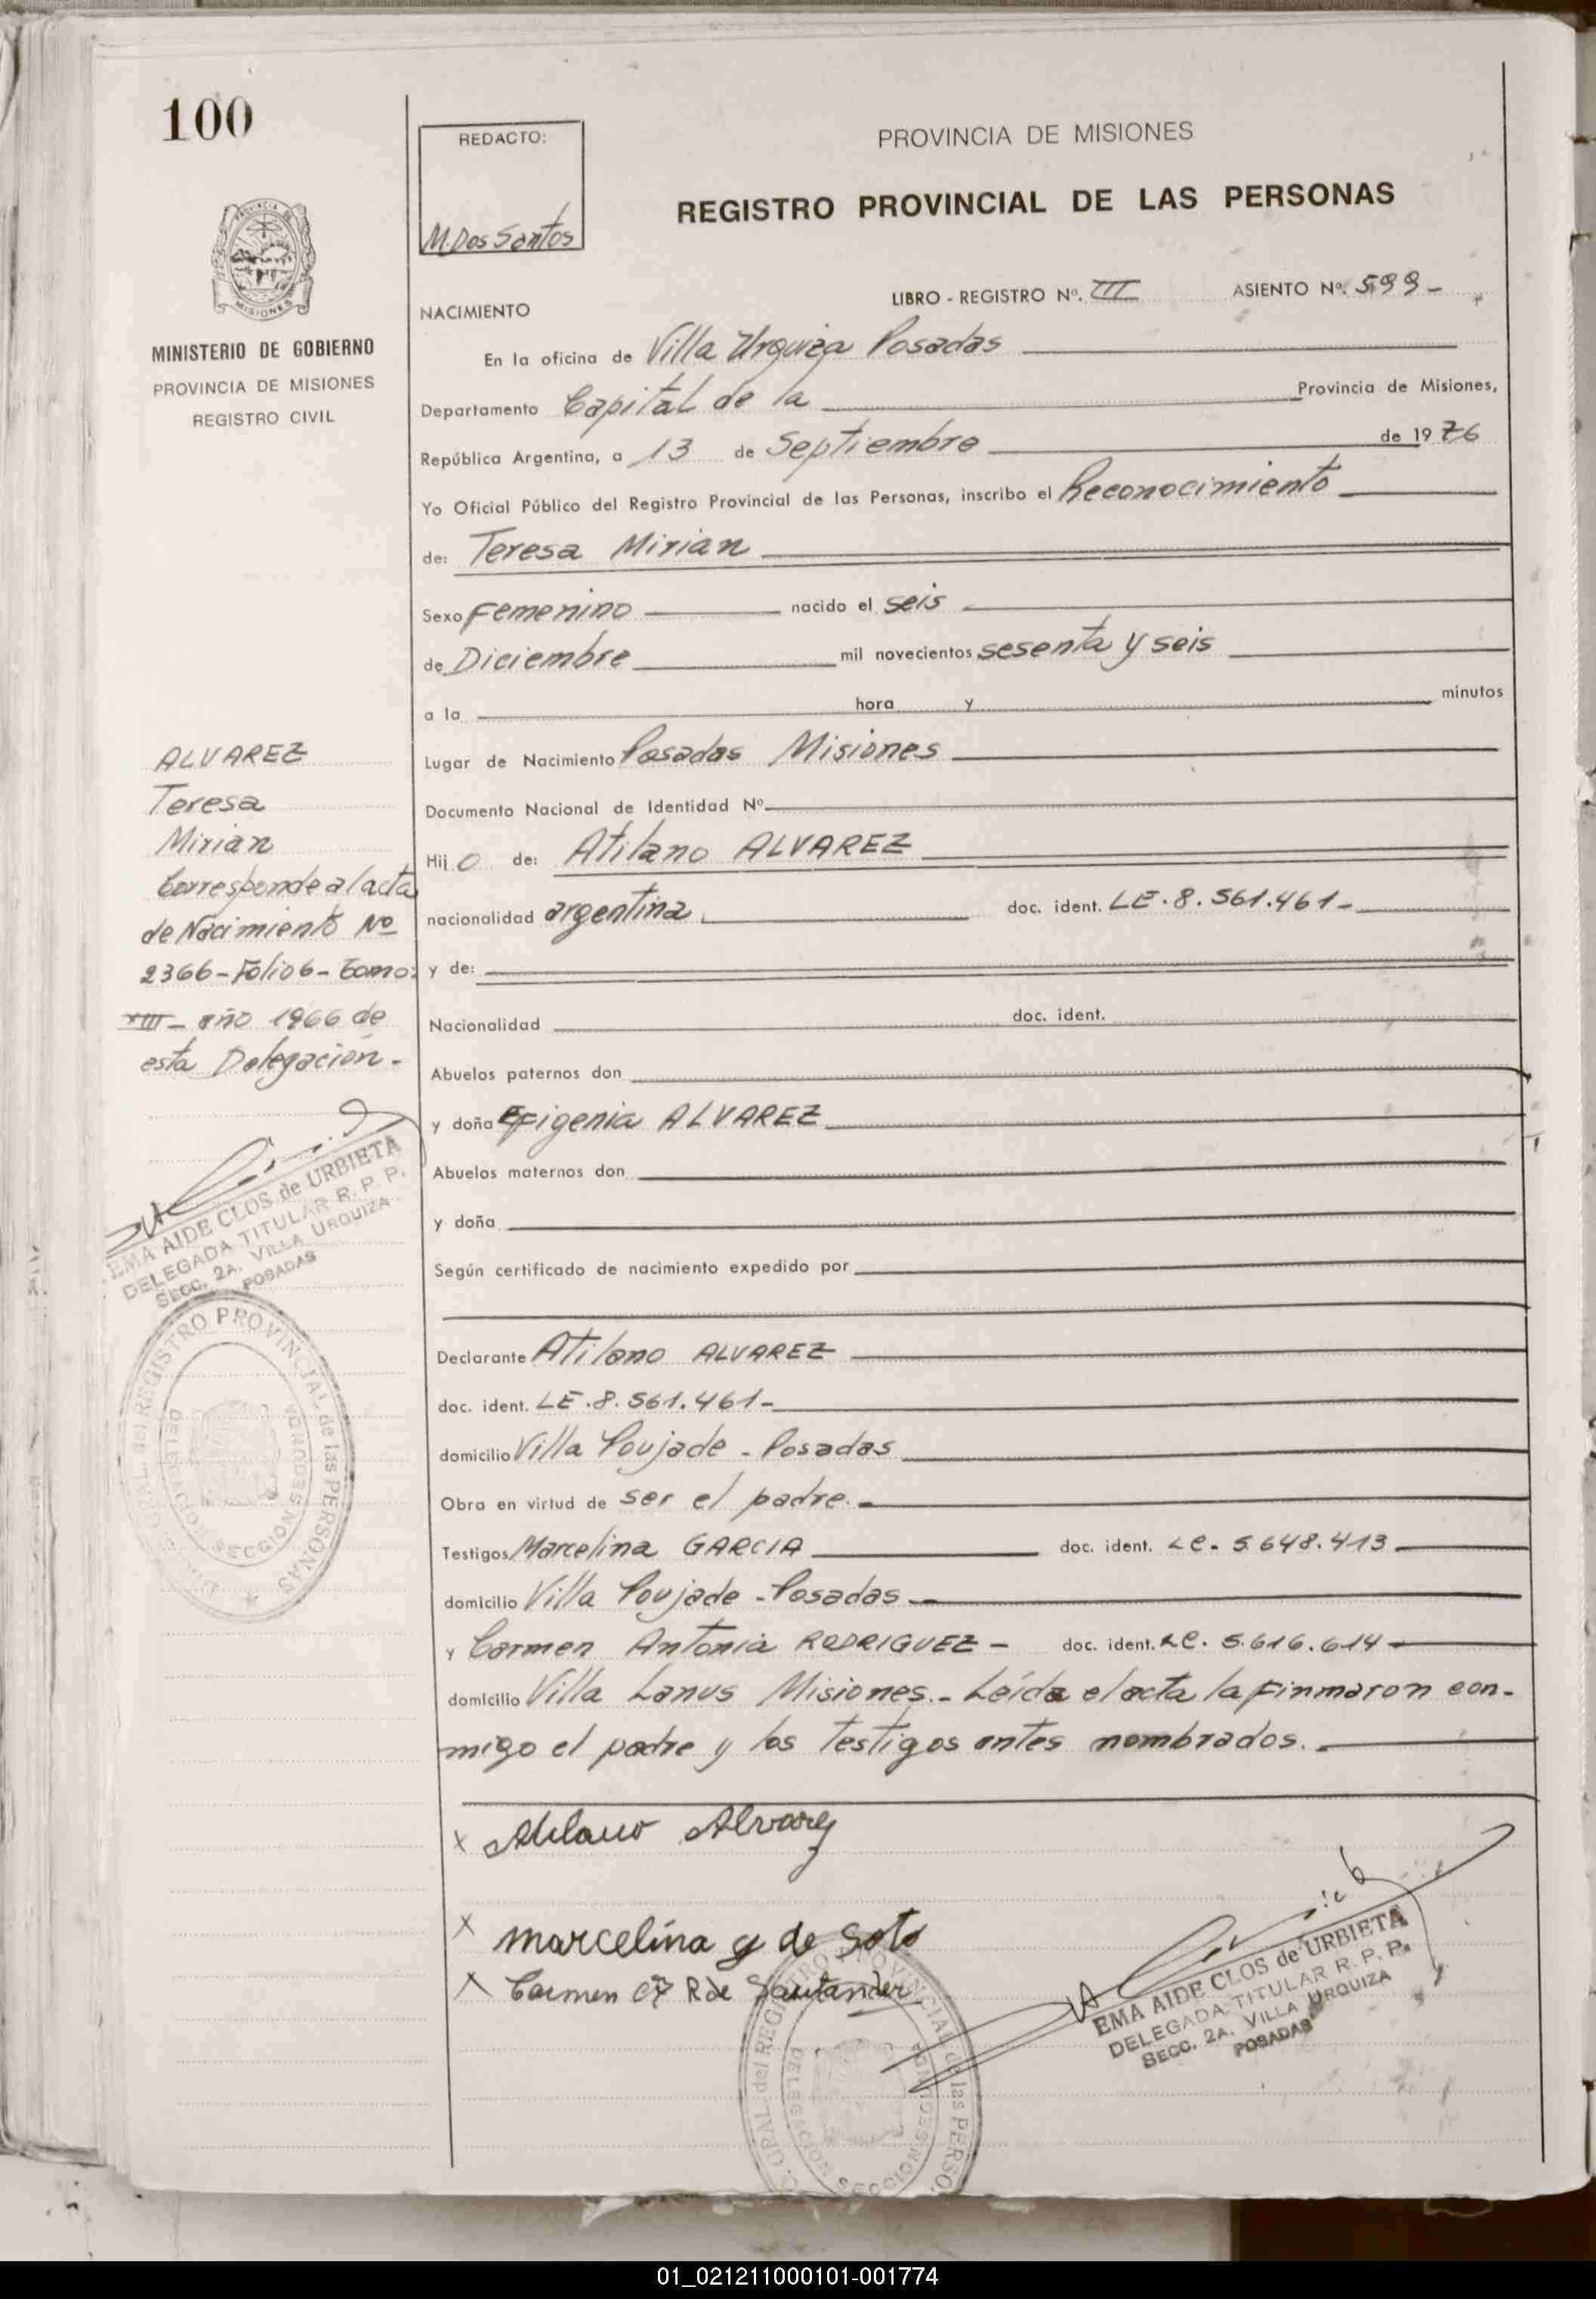 100
MINISTERIO DE GOBIERNO
PROVINCIA DE MISIONES
REGISTRO CIVIL
ALVAREZ
Teresa
Mirian
Corresponde al acta
de Nacimiento Nº
2366-Folio 6- Tomo:
XIII- año 1966 de
esta Delegación-
EMA AIDE CLOS de URBIETA
DELEGADA TITULAR R. P. P.
SECC. 2A. VILLA URQUIZA
POSADAS
GRAL. del REGISTRO PROVINCIAL de las PERSONAS
DELEGACION SECCION SEGUNDA
REDACTO:
M. Dos Santos
PROVINCIA DE MISIONES
REGISTRO PROVINCIAL DE LAS PERSONAS
LIBRO - REGISTRO Nº. III ASIENTO Nº. 599-
NACIMIENTO
En la oficina de Villa Urquiza Posadas
Departamento Capital de la Provincia de Misiones,
República Argentina, a 13 de Septiembre de 1976
Yo Oficial Público del Registro Provincial de las Personas, inscribo el Reconocimiento
de: Teresa Mirian
Sexo Femenino nacido el seis
de Diciembre mil novecientos sesenta y seis
a la hora y minutos
Lugar de Nacimiento Posadas Misiones
Documento Nacional de Identidad Nº
Hij o de: Atilano ALVAREZ
nacionalidad argentina doc. ident. LE.8.561.461-
y de:
Nacionalidad doc. ident.
Abuelos paternos don
y doña Efigenia ALVAREZ
Abuelos maternos don
y doña
Según certificado de nacimiento expedido por
Declarante Atilano ALVAREZ
doc. ident. LE.8.561.461-
domicilio Villa Poujade - Posadas
Obra en virtud de ser el padre.-
Testigos Marcelina GARCIA doc. ident. LC. 5.648.413
domicilio Villa Poujade - Posadas
y Carmen Antonia RODRIGUEZ - doc. ident. LC. 5.616.614
domicilio Villa Lanus Misiones.- Leída el acta la finmaron con-
migo el padre y los testigos antes nombrados.
x Atilano Alvarez
x marcelina g de Soto
x Carmen R de Santander
EMA AIDE CLOS de URBIETA
DELEGADA TITULAR R. P. P.
SECC. 2A. VILLA URQUIZA
POSADAS
GRAL. del REGISTRO PROVINCIAL de las PERSO
DELEGACION SECCION SEGUNDA
01_021211000101-001774